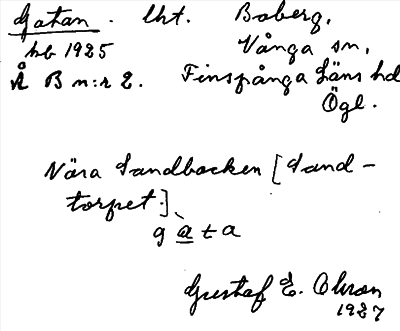 Gatan. lht. Boberg,
hb 1925 Vånga sn,
Å B n:r 2. Finspånga läns hd
Ögl.
Nära Sandbacken [Sand-
torpet.]
gata
Gustaf E. Olsson
1927